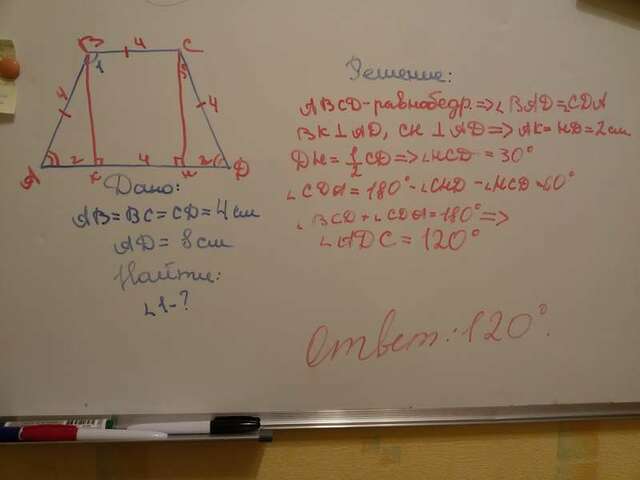 B 4 C
1 3
4 4
A 2 K 4 H 2 D
Дано:
AB=BC=CD=4см
AD=8см
Найти:
∠1-?
Решение:
ABCD-равнобедр.=>∠BAD=∠CDA
BK⊥AD, CH⊥AD=>AK=HD=2см.
DH=1/2CD=>∠HCD=30°
∠CDA=180°-∠CHD-∠HCD=60°
∠BCD+∠CDA=180°=>
∠ADC=120°
Ответ:120°.